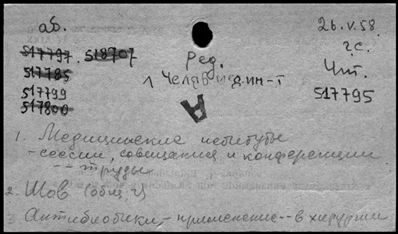 аб. 26.V.58.
517797. 518707 Ред. 2с.
517785 1 Челяб. мед. ин-т Чит.
517799 А 517795
517800
1. Медицинские институты
- сессии, совещания и конференции
-- труды
2. Шов (общ. ч)
3. Антибиотики - применение -- в хирургии